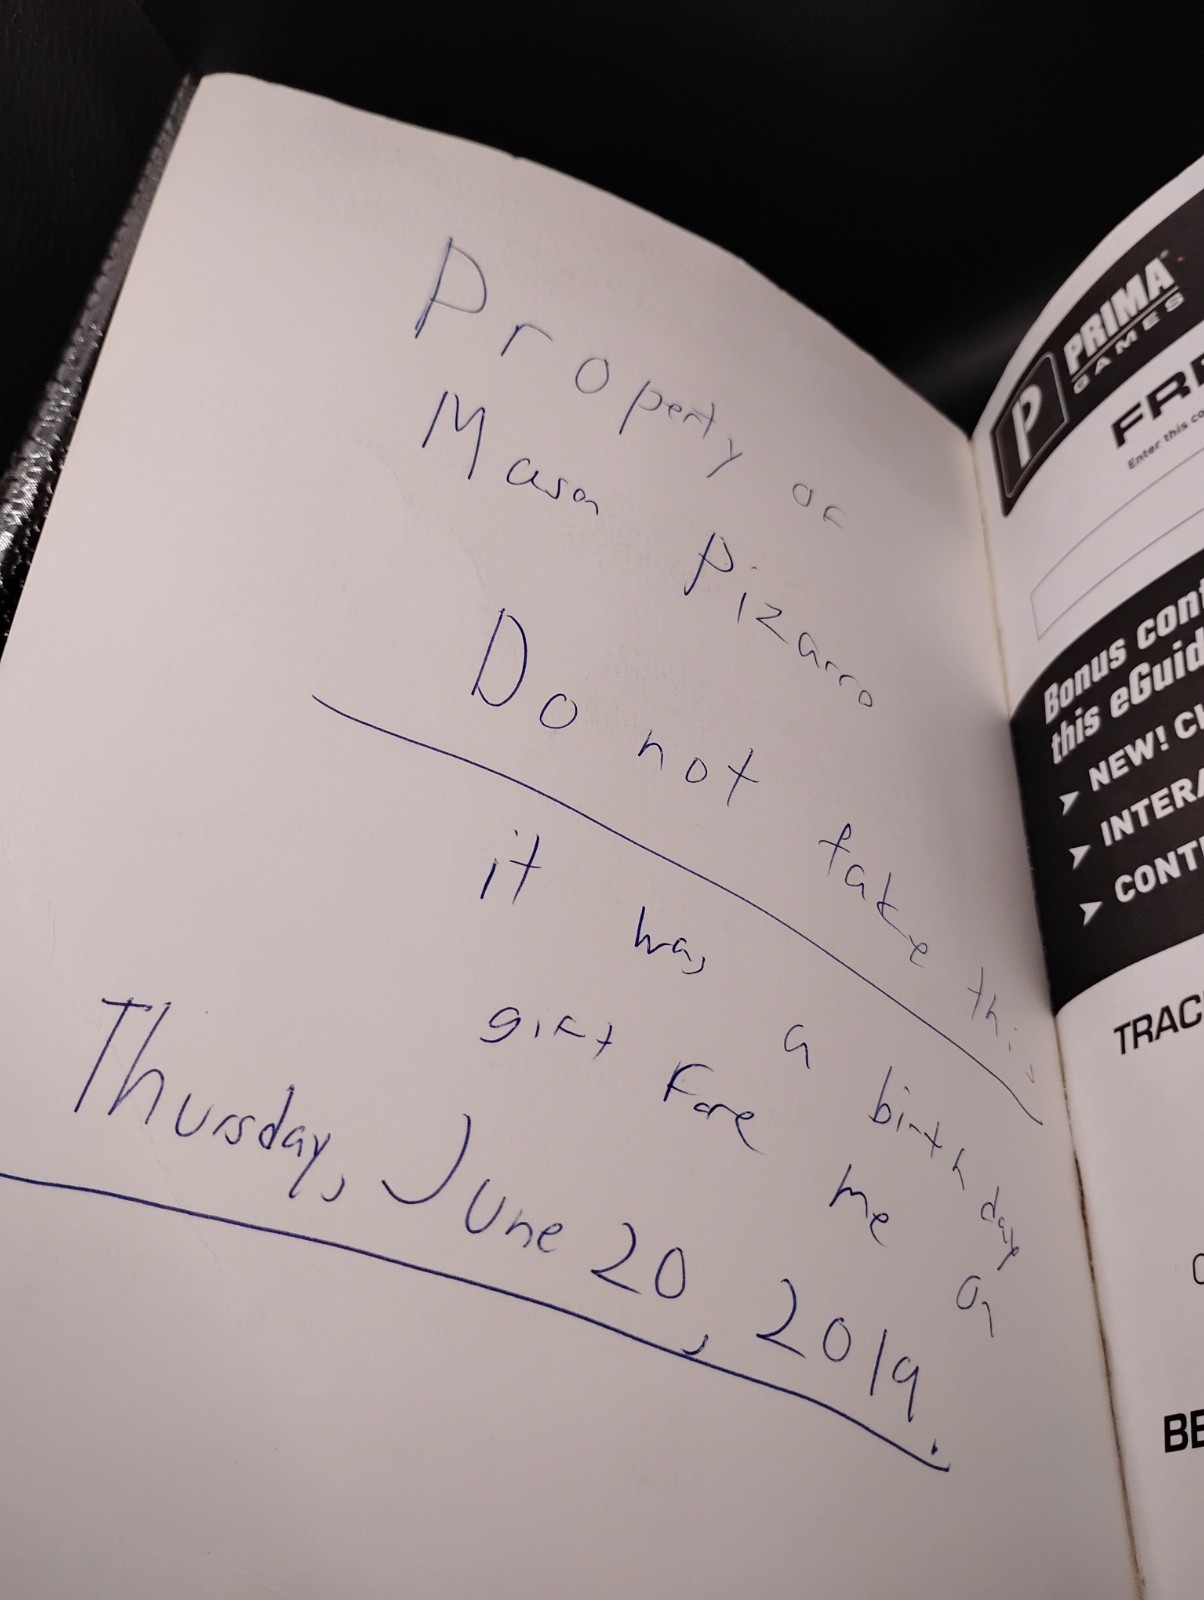 Property of
Mason Pizarro
Do not take this
it was a birthday
gift Fore me on
Thursday, June 20, 2019.
PRIMA
GAMES
Enter this
Bonus
this
NEW!
TRAC
BE